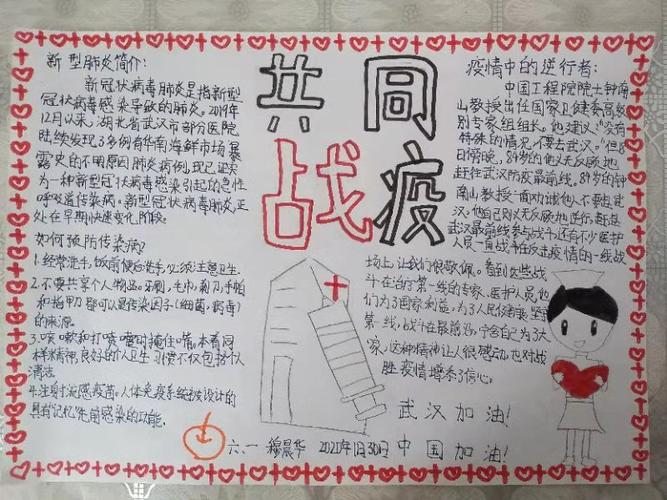 新型肺炎简介:
新冠状病毒肺炎是指新型
冠状病毒感染导致的肺炎。2019年
12月以来,湖北省武汉市部分医院
陆续发现多例有华南海鲜市场暴
露史的不明原因肺炎病例,现已证实
为一种新型冠状病毒感染引起的急性
呼吸道传染病。新型冠状病毒肺炎正
处在早期快速变化阶段。
如何预防传染病?
1.经常洗手,饭前便后洗手,必须注意卫生。
2.不要共享个人物品,牙刷,毛巾,剃刀,手帕
和指甲刀都可以是传染因子(细菌,病毒)
的来源。
3.咳嗽和打喷嚏时掩住嘴,本着同
样精神,良好的个人卫生习惯不仅包括个人
清洁
4.注射流感疫苗。人体免疫系统被设计的
具有记忆先前感染的功能。
共同
战疫
疫情中的逆行者:
中国工程院院士钟南
山教授出任国家卫健委高级
别专家组组长。他建议:“没有
特殊的情况,不要去武汉。”但18
日傍晚,84岁的他义无反顾地
赶往武汉防疫最前线。84岁的钟
南山教授一面劝诫他人不要赴武
汉,他自己则义无反顾地逆行,赶往
武汉最前线参与战斗还有不少医护
人员一直战斗在反击疫情的一线战
场上,让我们很敬佩。看到这些战
斗在治疗第一线的专家、医护人员他
们为了国家利益,为了人民健康,坚守
第一线,战斗在最前沿,宁舍自己为了大
家,这种精神让人很感动,也对战
胜疫情增添了信心。
武汉加油!
六.一 穆晨华 2020年1月30日 中国加油!